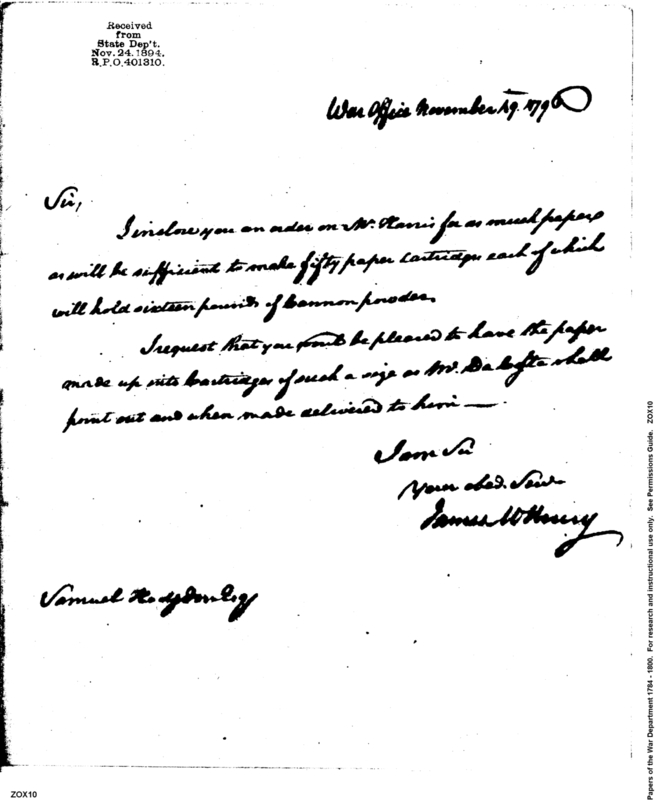 Received
from
State Dep't.
Nov. 24. 1894.
R.P.O. 401310.
War Office November 19. 1796
Sir,
I inclose you an order on Mr. Harris for as much paper
as will be sufficient to make fifty paper Cartridges each of which
will hold sixteen pounds of Cannon powder.
I request that you be pleased to have the paper
made up into Cartridges of such a size as Mr. Da Costa shall
point out and when made delivered to him —
I am Sir
Your obed. Serv.
James McHenry
Samuel Hodgdon Esq
ZOX10
Papers of the War Department 1784 - 1800. For research and instructional use only. See Permissions Guide. ZOX10